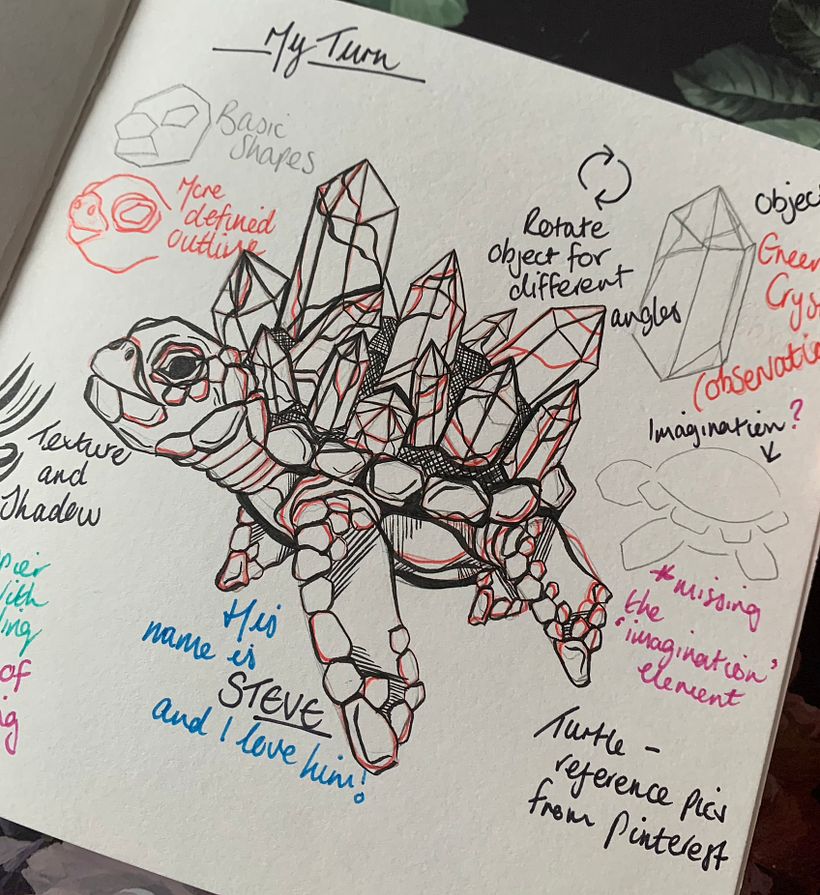 My Turn
Basic
Shapes
More
defined
outline
Rotate
object for
different
angles
Objec
Green
Crys
(observatio
Imagination?
Texture
and
Shadow
pier
with
ling
of
g
His
name is
STEVE
and I love him!
*missing
the
'imagination'
element
Turtle -
reference pics
from Pinterest